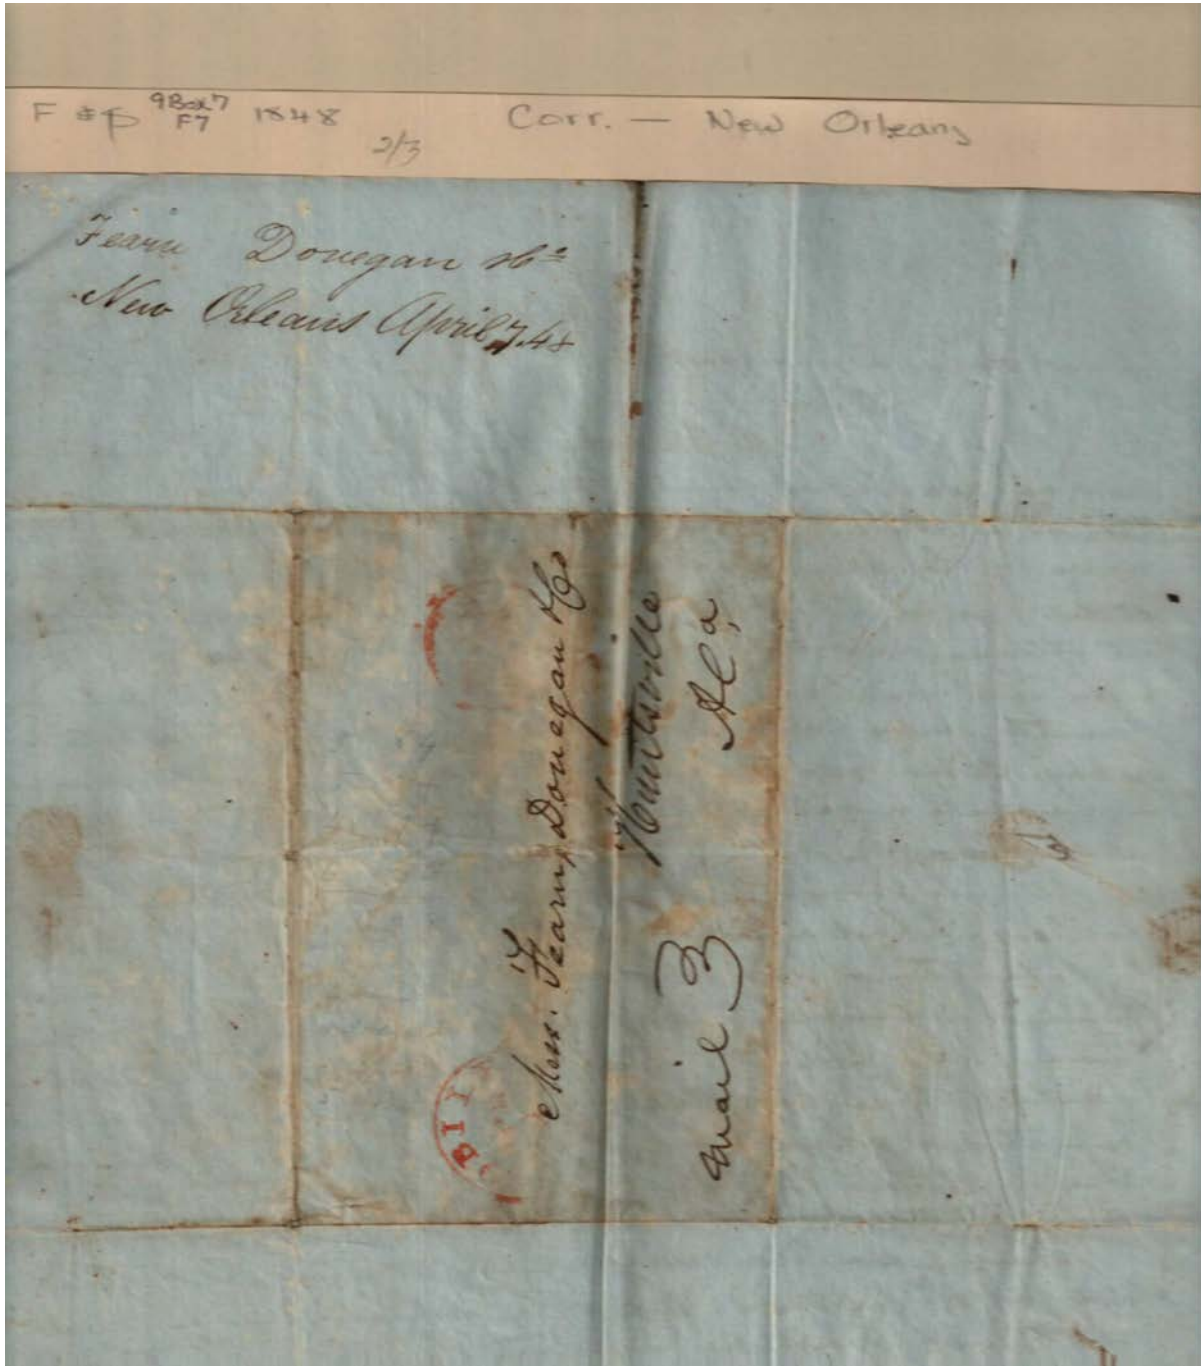 F & P 9Box7 F7 1848 Corr. — New Orleans
2/3
Fearn Donegan & Co
New Orleans April 7. 48
Mess. Fearn, Donegan & Co
Huntsville
Ala
Mail 3